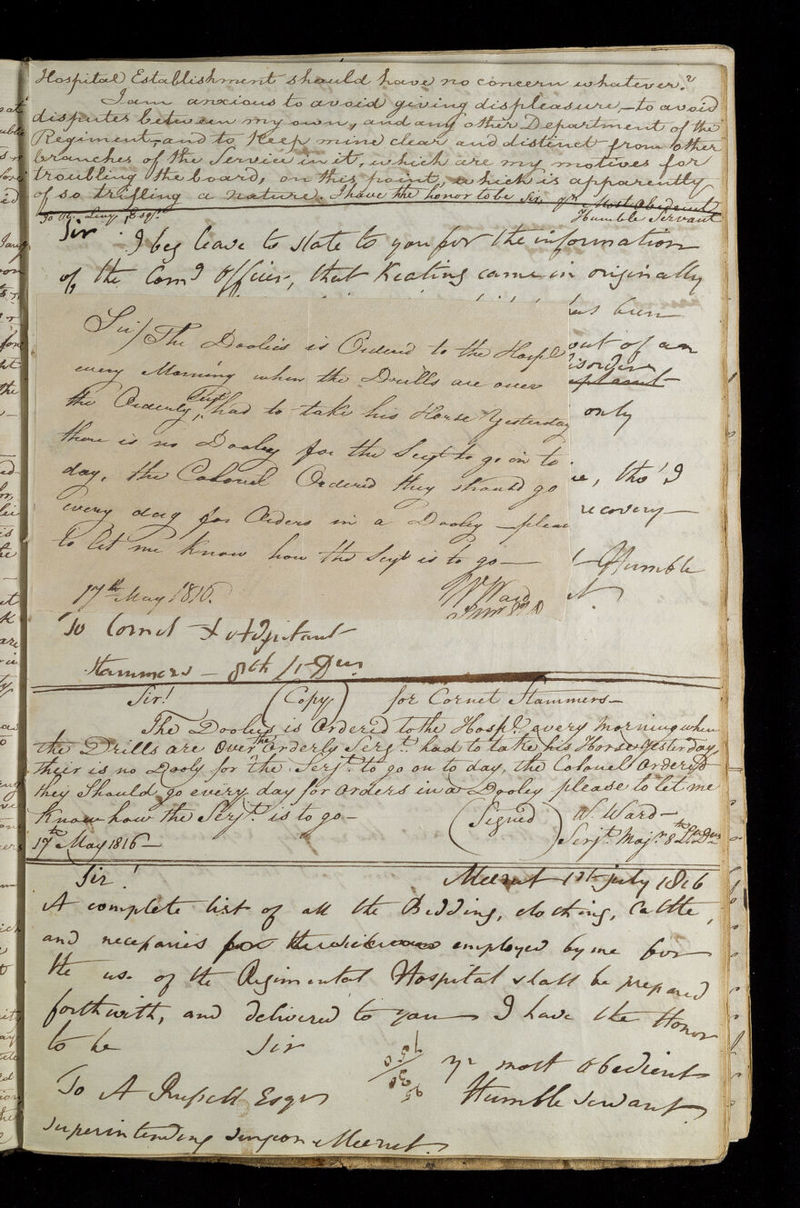 Hospital Establishment should have no concern whatever.
I am anxious to avoid giving displeasure, – to avoid
disputes between my own, and any other Department of the
Regiment, and to keep mine clear and distinct from other
branches of the Service in it, which are my motives for
troubling the board, on this point, which is apparently
of so trifling a nature. I have the honor to be Sir yr Most Obedient
Humble Servant
Sir I beg leave to state to you for the information
of the Comg Officer, that Keating came in originally
has been
out of an
disorder
only
tho' I
recovery –
Humble
Sir/ The Doolies is Ordered to the Hospl
every Morning when the Drills are over
the Orderly Serjt had to take his Horse Yesterday
there is no Dooley for the Serjt to go on to
day, the Colonel Ordered they should go
every day for Orders in a Dooley – please
to let me know how the Serjt is to go –
17th May 1816.
W Ward
To Cornet & Adjutant
Hammers – 8th Lt Dns
Sir! (Copy) for Cornet Hammers –
The Dooleys is Ordered to the Hospl. every morning when
the Drills are over the Orderly Serjt. had to take his Horse Yesterday,
their is no Dooly for the Serjt. to go on to day, the Colonel Ordered
they Should go every day for Orders in a Dooley please to let me
Know how the Serjt. is to go –
(Signed) W. Ward –
17th May 1816 –
Serjt. Majr. 8th
Sir! Meerut 1st July 1816
A complete list of all the Bedding, clothing, Cattle,
and necessaries employed by me for
the use of the Regimental Hospital shall be prepared
forthwith, and delivered to you – I have the Honor
to be Sir
yr most obedient
To A Russell Esqr
Humble Servant
Superintending Surgeon Meerut